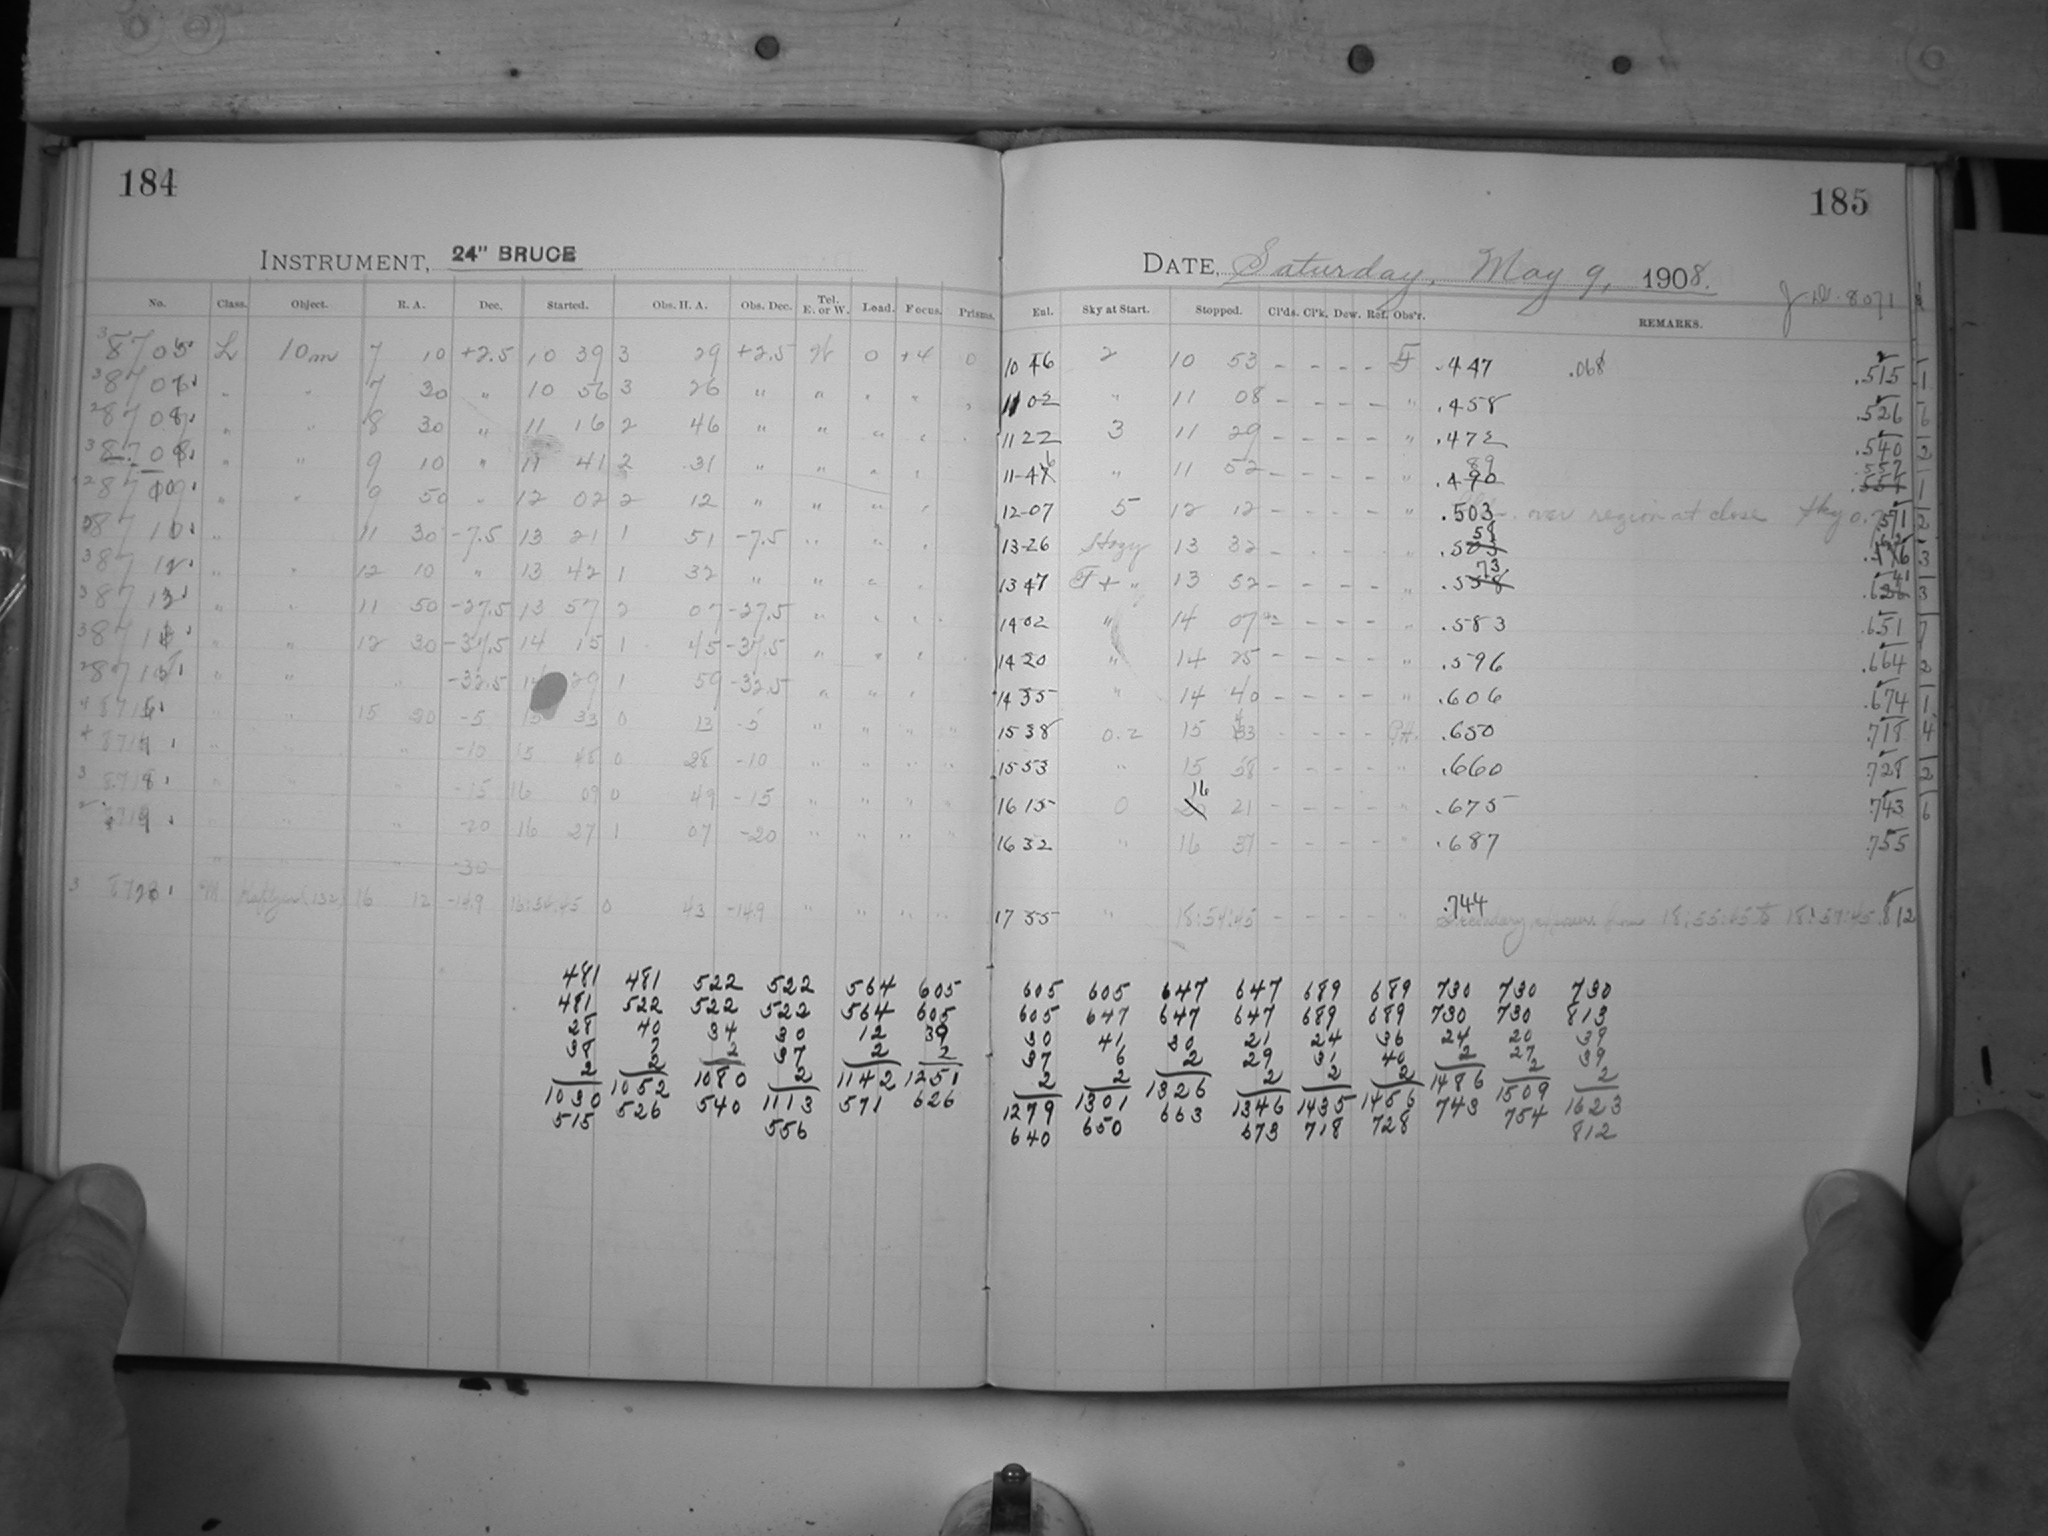 184
INSTRUMENT, 24" BRUCE
No. Class. Object. R. A. Dec. Started. Obs. H. A. Obs. Dec. Tel. E. or W. Load. Focus. Prisms.
3 8705 L 10m 7 10 +2.5 10 39 3 29 +2.5 W 0 +4 0
3 8706 " " 7 30 " 10 56 3 26 " " " " "
" " 8 30 " 11 16 2 46 " " " "
" " 9 10 " 11 41 2 31 " " " "
" " 9 50 " 12 02 2 12 " " " "
8710 " 11 30 -7.5 13 21 1 51 -7.5 " " "
" " 12 10 " 13 42 1 32 " " " "
" " 11 50 -27.5 13 57 2 07 -27.5 " " "
" " 12 30 14 15 1 45 " " "
" " " -32.5 29 1 59 -32.5 " " "
" " 15 20 -5 15 33 0 13 -5 " " " "
" " " -10 15 48 0 28 -10 " " " "
8718 " " " -15 16 09 0 49 -15 " " " "
8719 " " " -20 16 27 1 07 -20 " " " "
" " " -30
3 8720 16 12 -14.9 0 43 -14.9 " " " "
481 481 522 522 564 605
481 522 522 522 564 605
28 40 34 30 12 39
38 7 2 37 2 2
2 2 1080 2 1142 1251
1030 1052 540 1113 571 626
515 526 556
185
DATE, Saturday, May 9, 1908.
J.D. 8071
Enl. Sky at Start. Stopped. Cl'ds. Cl'k. Dew. Ref. Obs'r. REMARKS.
10 46 2 10 53 - - - - F .447 .068 .515 1
11 02 " 11 08 - - - - " .458 .526 6
11 22 3 11 29 - - - - " .472 .540 2
11-46 " 11 52 - - - - " .490 89 .557 1
12-07 5 12 12 - - - - " .503 over region at close .571 2
13-26 Hazy 13 32 - - - " 3
13 47 F + " 13 52 - - - - " .558 73 3
14 02 " 14 07 - - - - " .583 .651 7
14 20 " 14 25 - - - - " .596 .664 2
14 35 " 14 40 - - - - " .606 .674 1
15 38 0.2 15 - - - - .650 .718 4
15 53 " 15 58 - - - - " .660 .728 2
16 15 0 16 21 - - - - " .675 .743 6
16 32 " 16 37 - - - - " .687 .755
17 55 " 18:54:45 - - - - " .744 Secondary exposure from 18:55:45 to 18:57:45 .812
605 605 647 647 689 689 730 730 730
605 647 647 647 689 689 730 730 813
30 41 30 21 24 36 24 20 39
37 6 2 29 31 40 2 27 39
2 2 1326 2 2 2 1486 2 2
1279 1301 663 1346 1435 1456 743 1509 1623
640 650 673 718 728 754 812